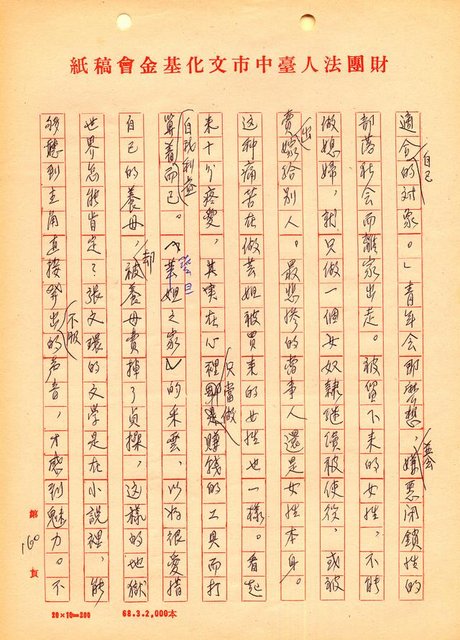 財團法人臺中市文化基金會稿紙
適合自己的對象。」青年會那麼想，並會嫌惡閉鎖性的
部落社會而離家出走。被留下來的女性，不能
做媳婦，就只做一個女奴隸繼續被使役，或被
賣出嫁給別人。最悲慘的當事人還是女性本身。
这种痛苦在做芸妲被買来的女性也一樣。看起
来十分疼愛，其実在心裡只當做賺錢的工具而打
算着自我利益而已。〈藝旦之家〉的采雲，以為很愛惜
自己的養母，却被養母賣掉了貞操，這樣的地獄
世界怎能肯定？張文環的文学是在小説裡，能
夠聽到主角直接發出的不服的声音，才感到魅力。不
第160頁
20×10=200
68.3.2,000本